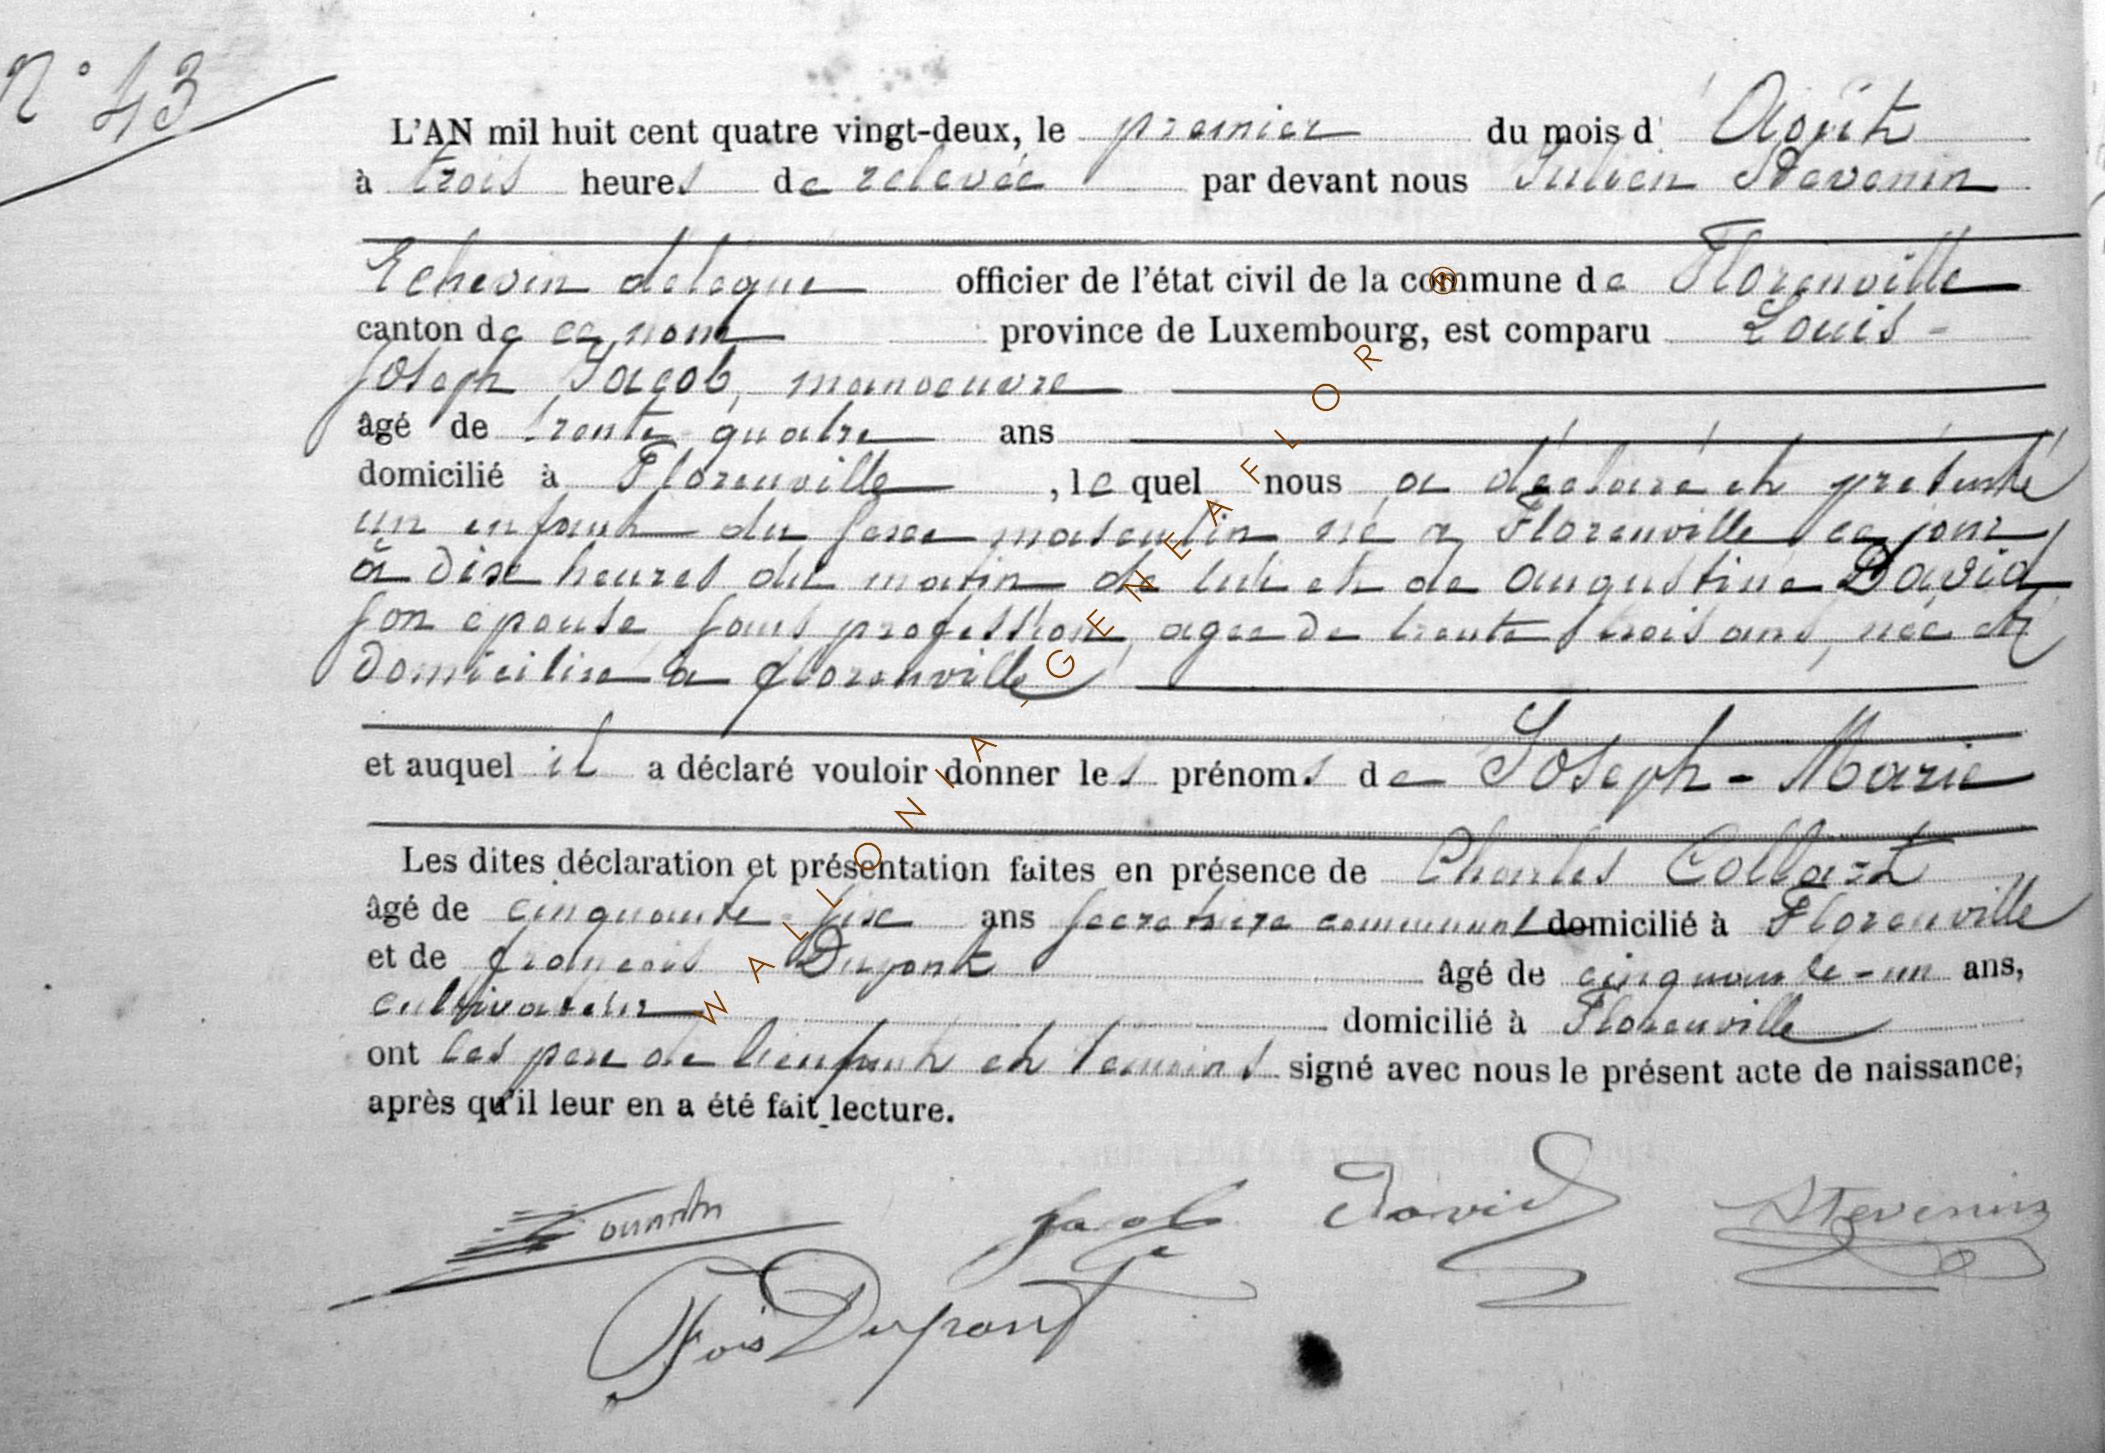 N° 43
L'AN mil huit cent quatre vingt-deux, le premier du mois d' Août
à trois heures de relevée par devant nous Julien Stevenin
Echevin délégué officier de l'état civil de la commune de Florenville
canton de ce nom province de Luxembourg, est comparu Louis-
Joseph Jacob, manoeuvre
âgé de trente-quatre ans
domicilié à Florenville, lequel nous a déclaré et présenté
un enfant du sexe masculin né à Florenville ce jour
à dix heures du matin de lui et de Augustine David
son épouse sans profession, agée de trente trois ans, née et
domiciliée à florenville
et auquel il a déclaré vouloir donner les prénoms de Joseph-Marie
Les dites déclaration et présentation faites en présence de Charles Collart
âgé de cinquante-six ans secretaire communal domicilié à Florenville
et de françois Dupont âgé de cinquante-un ans,
cultivateur domicilié à Florenville
ont les pere de l'enfant et temoins signé avec nous le présent acte de naissance,
après qu'il leur en a été fait lecture.
Jacob David Stevenin
Fois Dupont
WALLONIA-GENEAFLOR ®